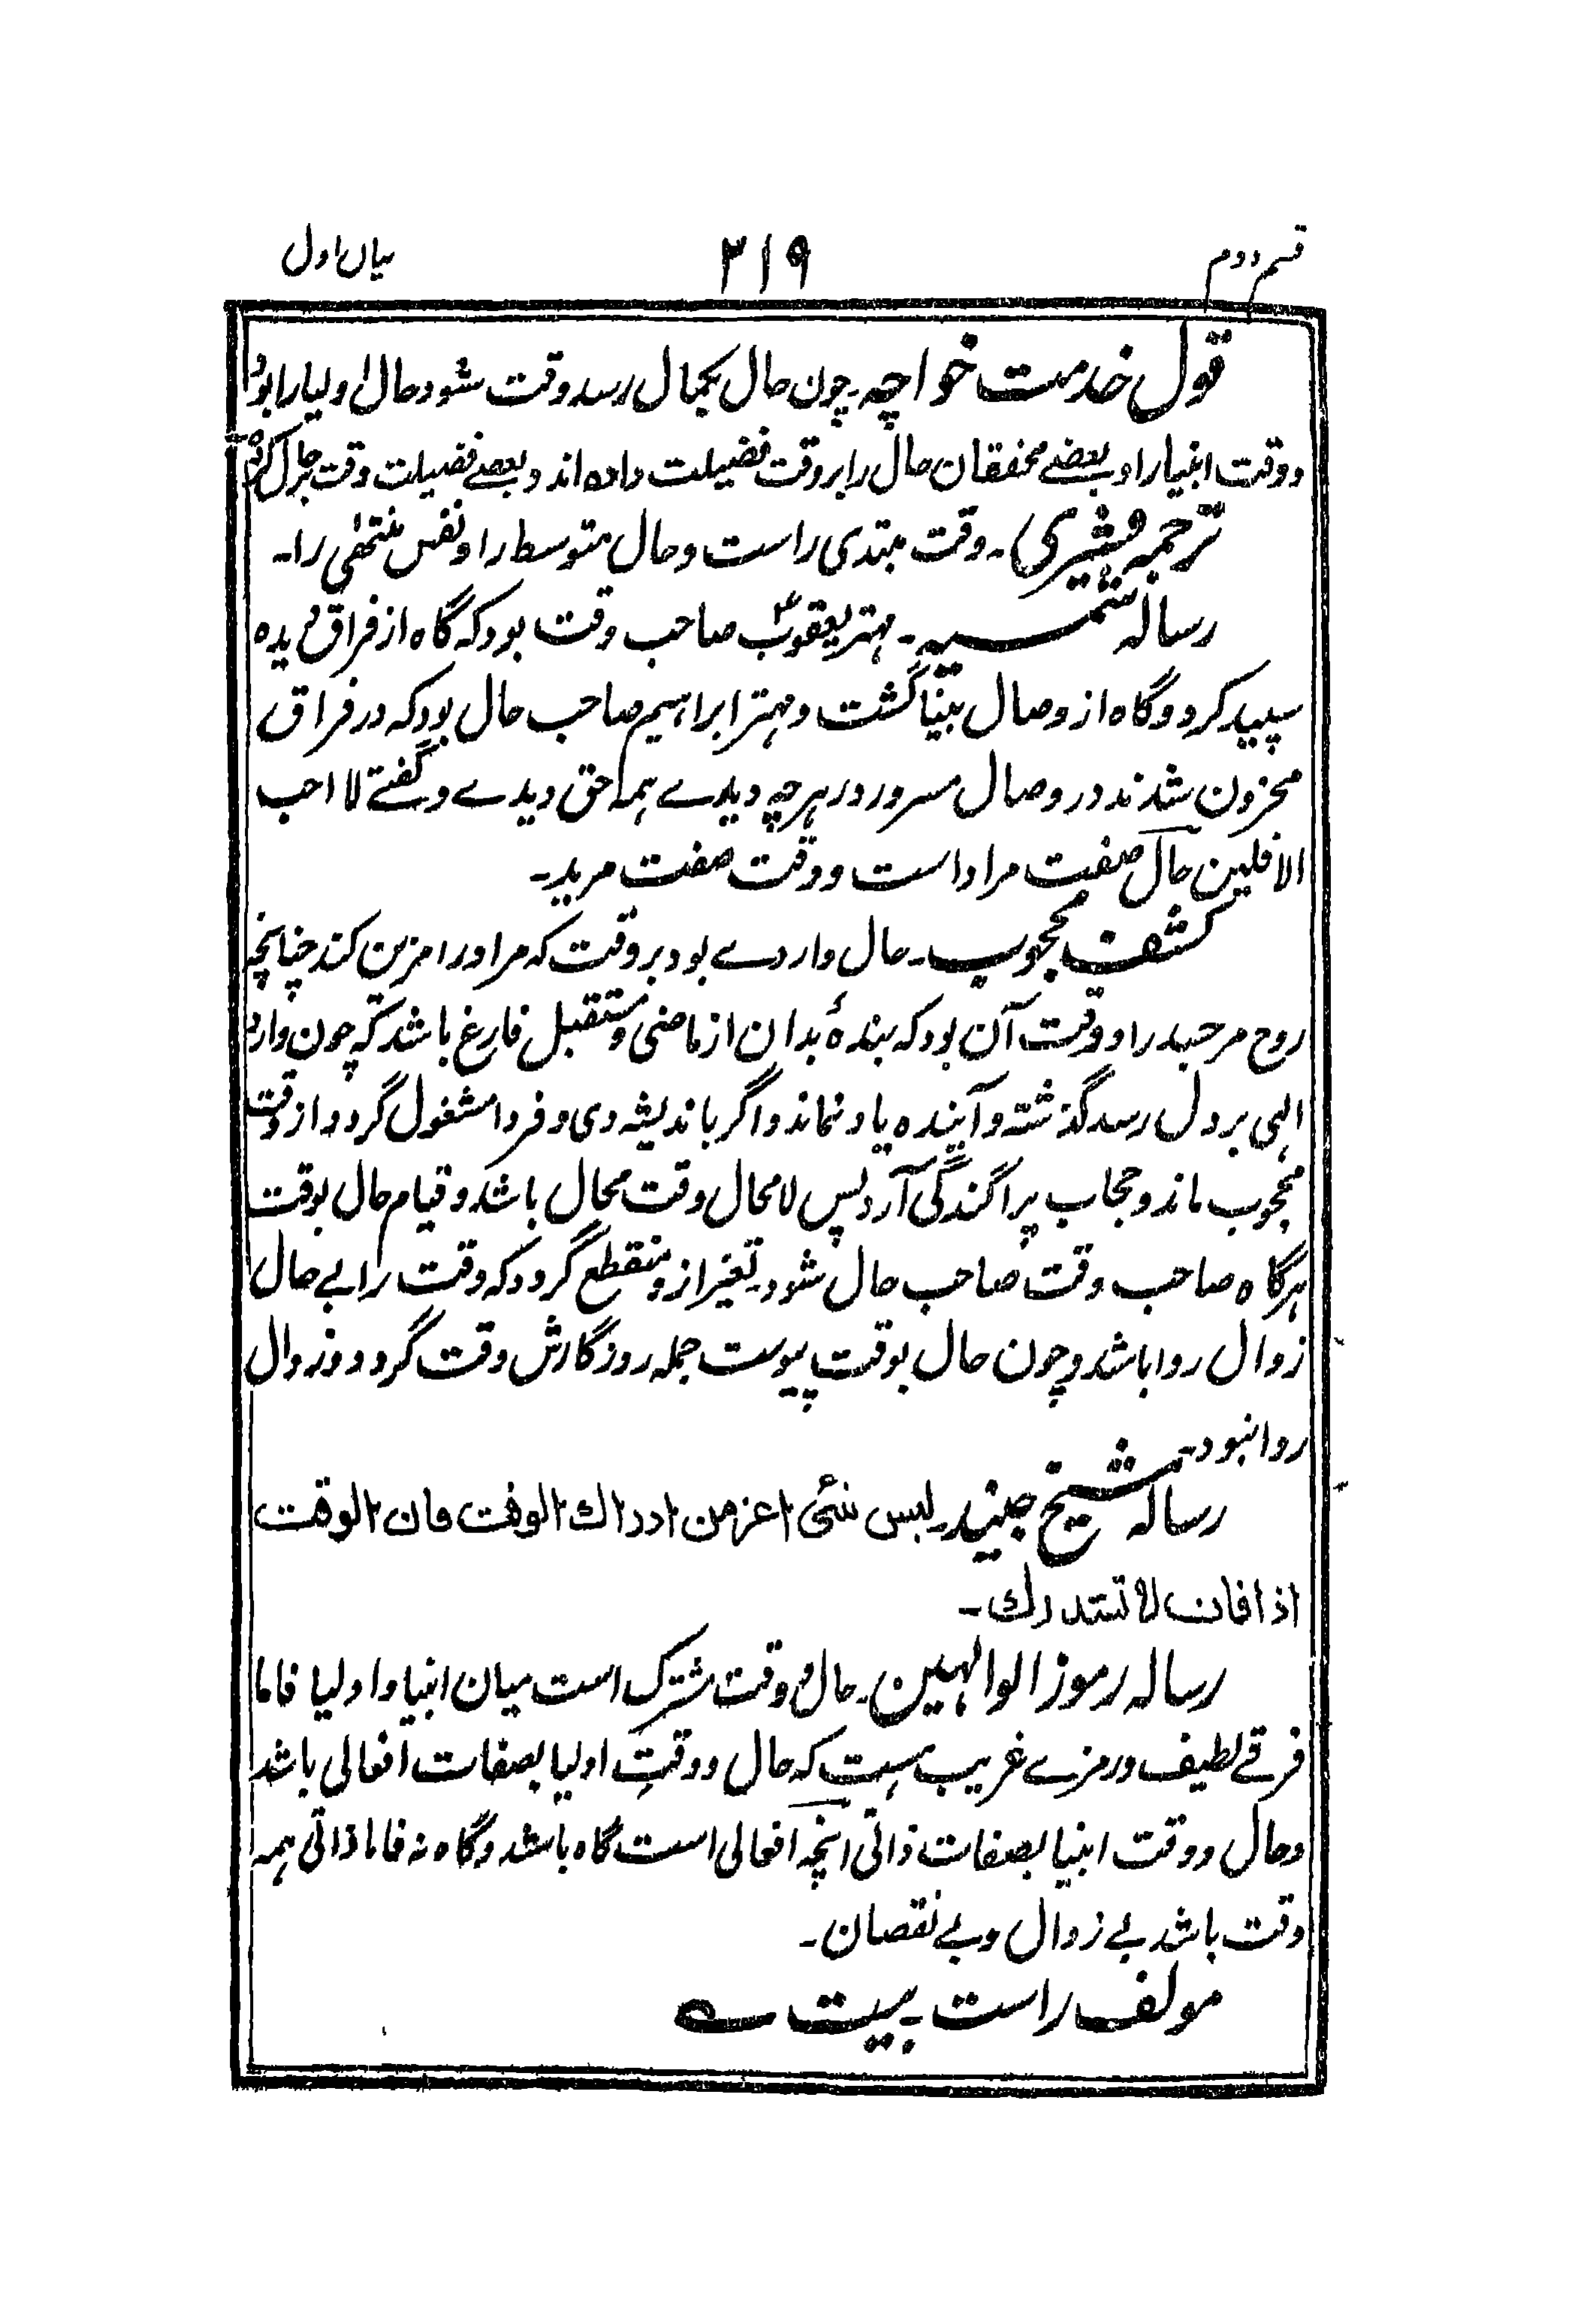 قسم دوم ۲۱۹ بیان اول
قول خدمت خواجہ۔ چون حال بکمال رسد وقت شود حال اولیا را بود
و وقت انبیا را و بعضے محققان حال را بر وقت فضیلت داده اند و بعضے فضیلت وقت بر حال کرده
ترجمہ قشیری۔ وقت مبتدی راست و حال متوسط را و نفس منتہی را۔
رسالہ شمسیہ۔ مہتر یعقوبؑ صاحب وقت بود کہ گاه از فراق دیده
سپید کرد و گاه از وصال بینا گشت و مہتر ابراہیم صاحب حال بود کہ در فراق
محزون شد نه در وصال مسرور در ہرچہ دیدے ہمہ حق دیدے و گفتے لا احب
الافلین حال صفت مراد است و وقت صفت مرید۔
کشف محجوب۔ حال واردے بود بر وقت کہ مر او را مزین کند چنانچہ
روح مر جسد را و وقت آن بود کہ بندۂ بدان از ماضی و مستقبل فارغ باشد کہ چون وارد
الہی بر دل رسد گذشتہ و آینده یاد نماند و اگر باندیشہ دی و فردا مشغول گردد از وقت
محجوب ماند و حجاب پراگندگی آرد پس لا محال وقت محال باشد و قیام حال بوقت
ہرگاه صاحب وقت صاحب حال شود تغیر از و منقطع گردد کہ وقت را بے حال
زوال روا باشد و چون حال بوقت پیوست جملہ روزگارش وقت گردد و زوال
روا نبود۔
رسالہ شیخ جنید۔ لیس شئی اعز من ادراك الوقت فان الوقت
اذا فات لا تستدرك۔
رسالہ رموز الوالہین۔ حال و وقت مشترک است میان انبیا و اولیا فاما
فرقے لطیف و رمزے غریب ہست کہ حال و وقتِ اولیا بصفات افعالی باشد
و حال و وقت انبیا بصفات ذاتی انچہ افعالی است گاه باشد و گاه نہ فاما ذاتی ہمہ
وقت باشد بے زوال و بے نقصان۔
مولف راست۔ بیت ؎